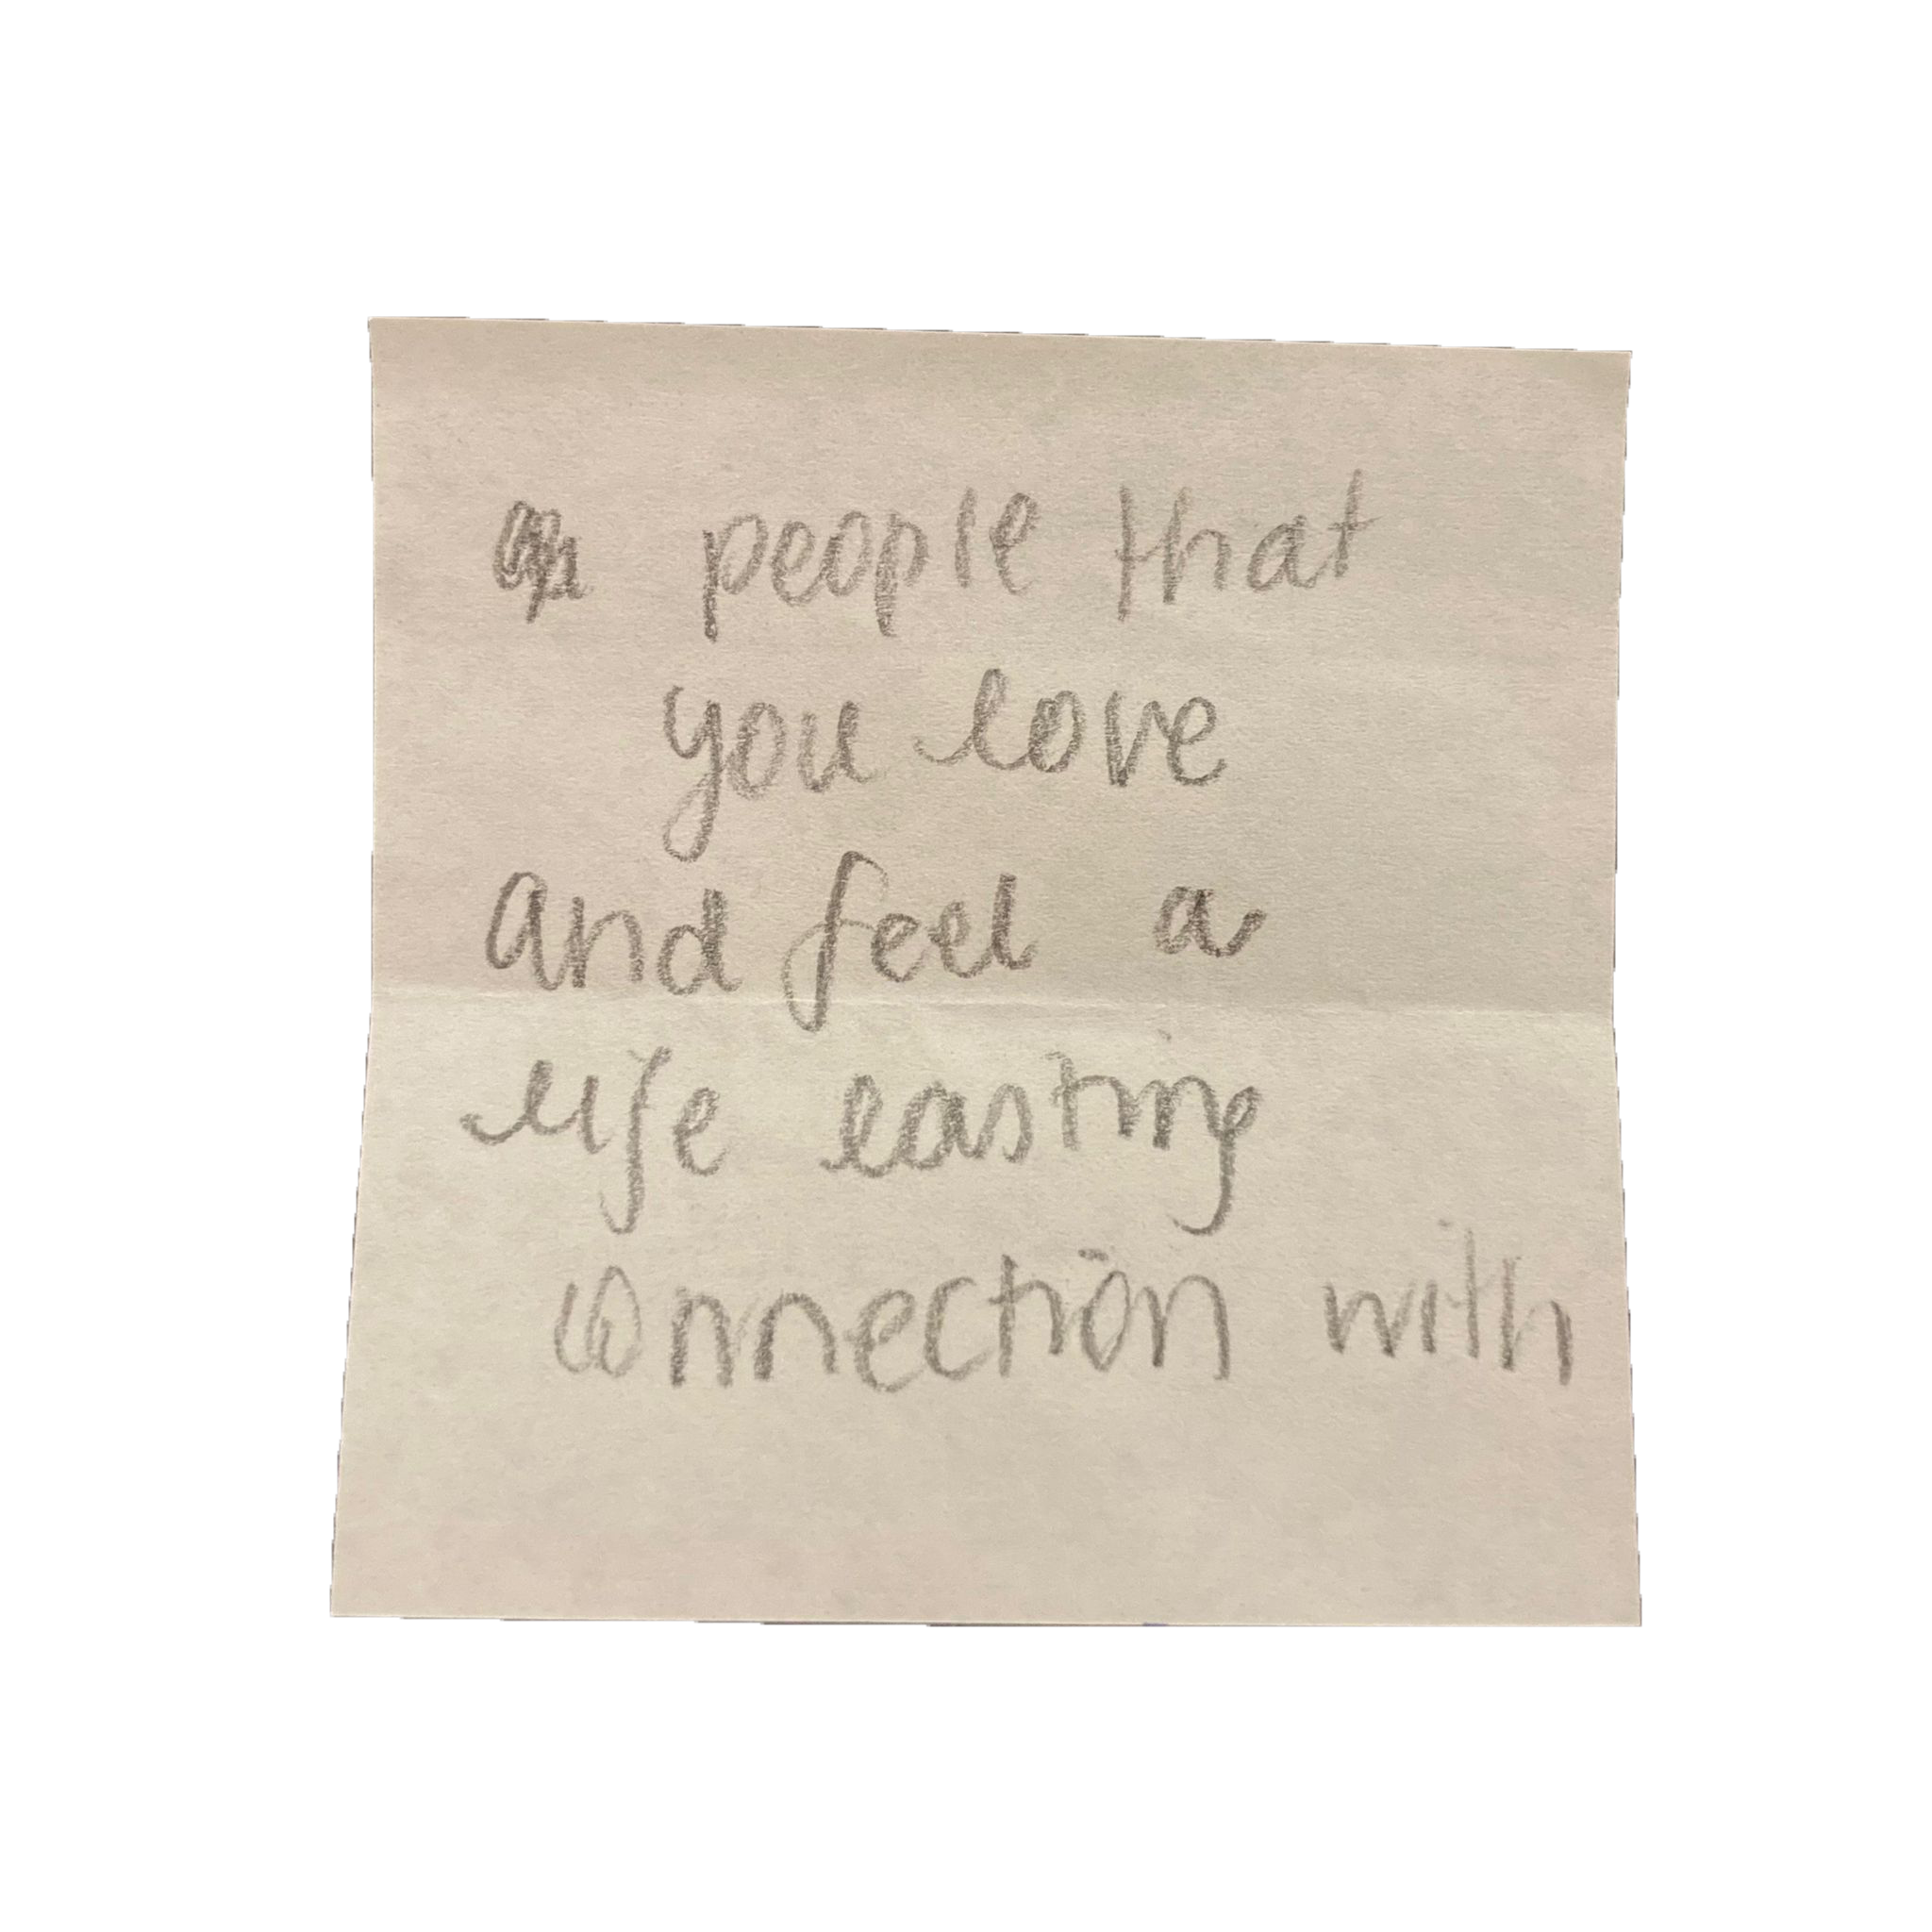 people that
you love
and feel a
life lasting
connection with